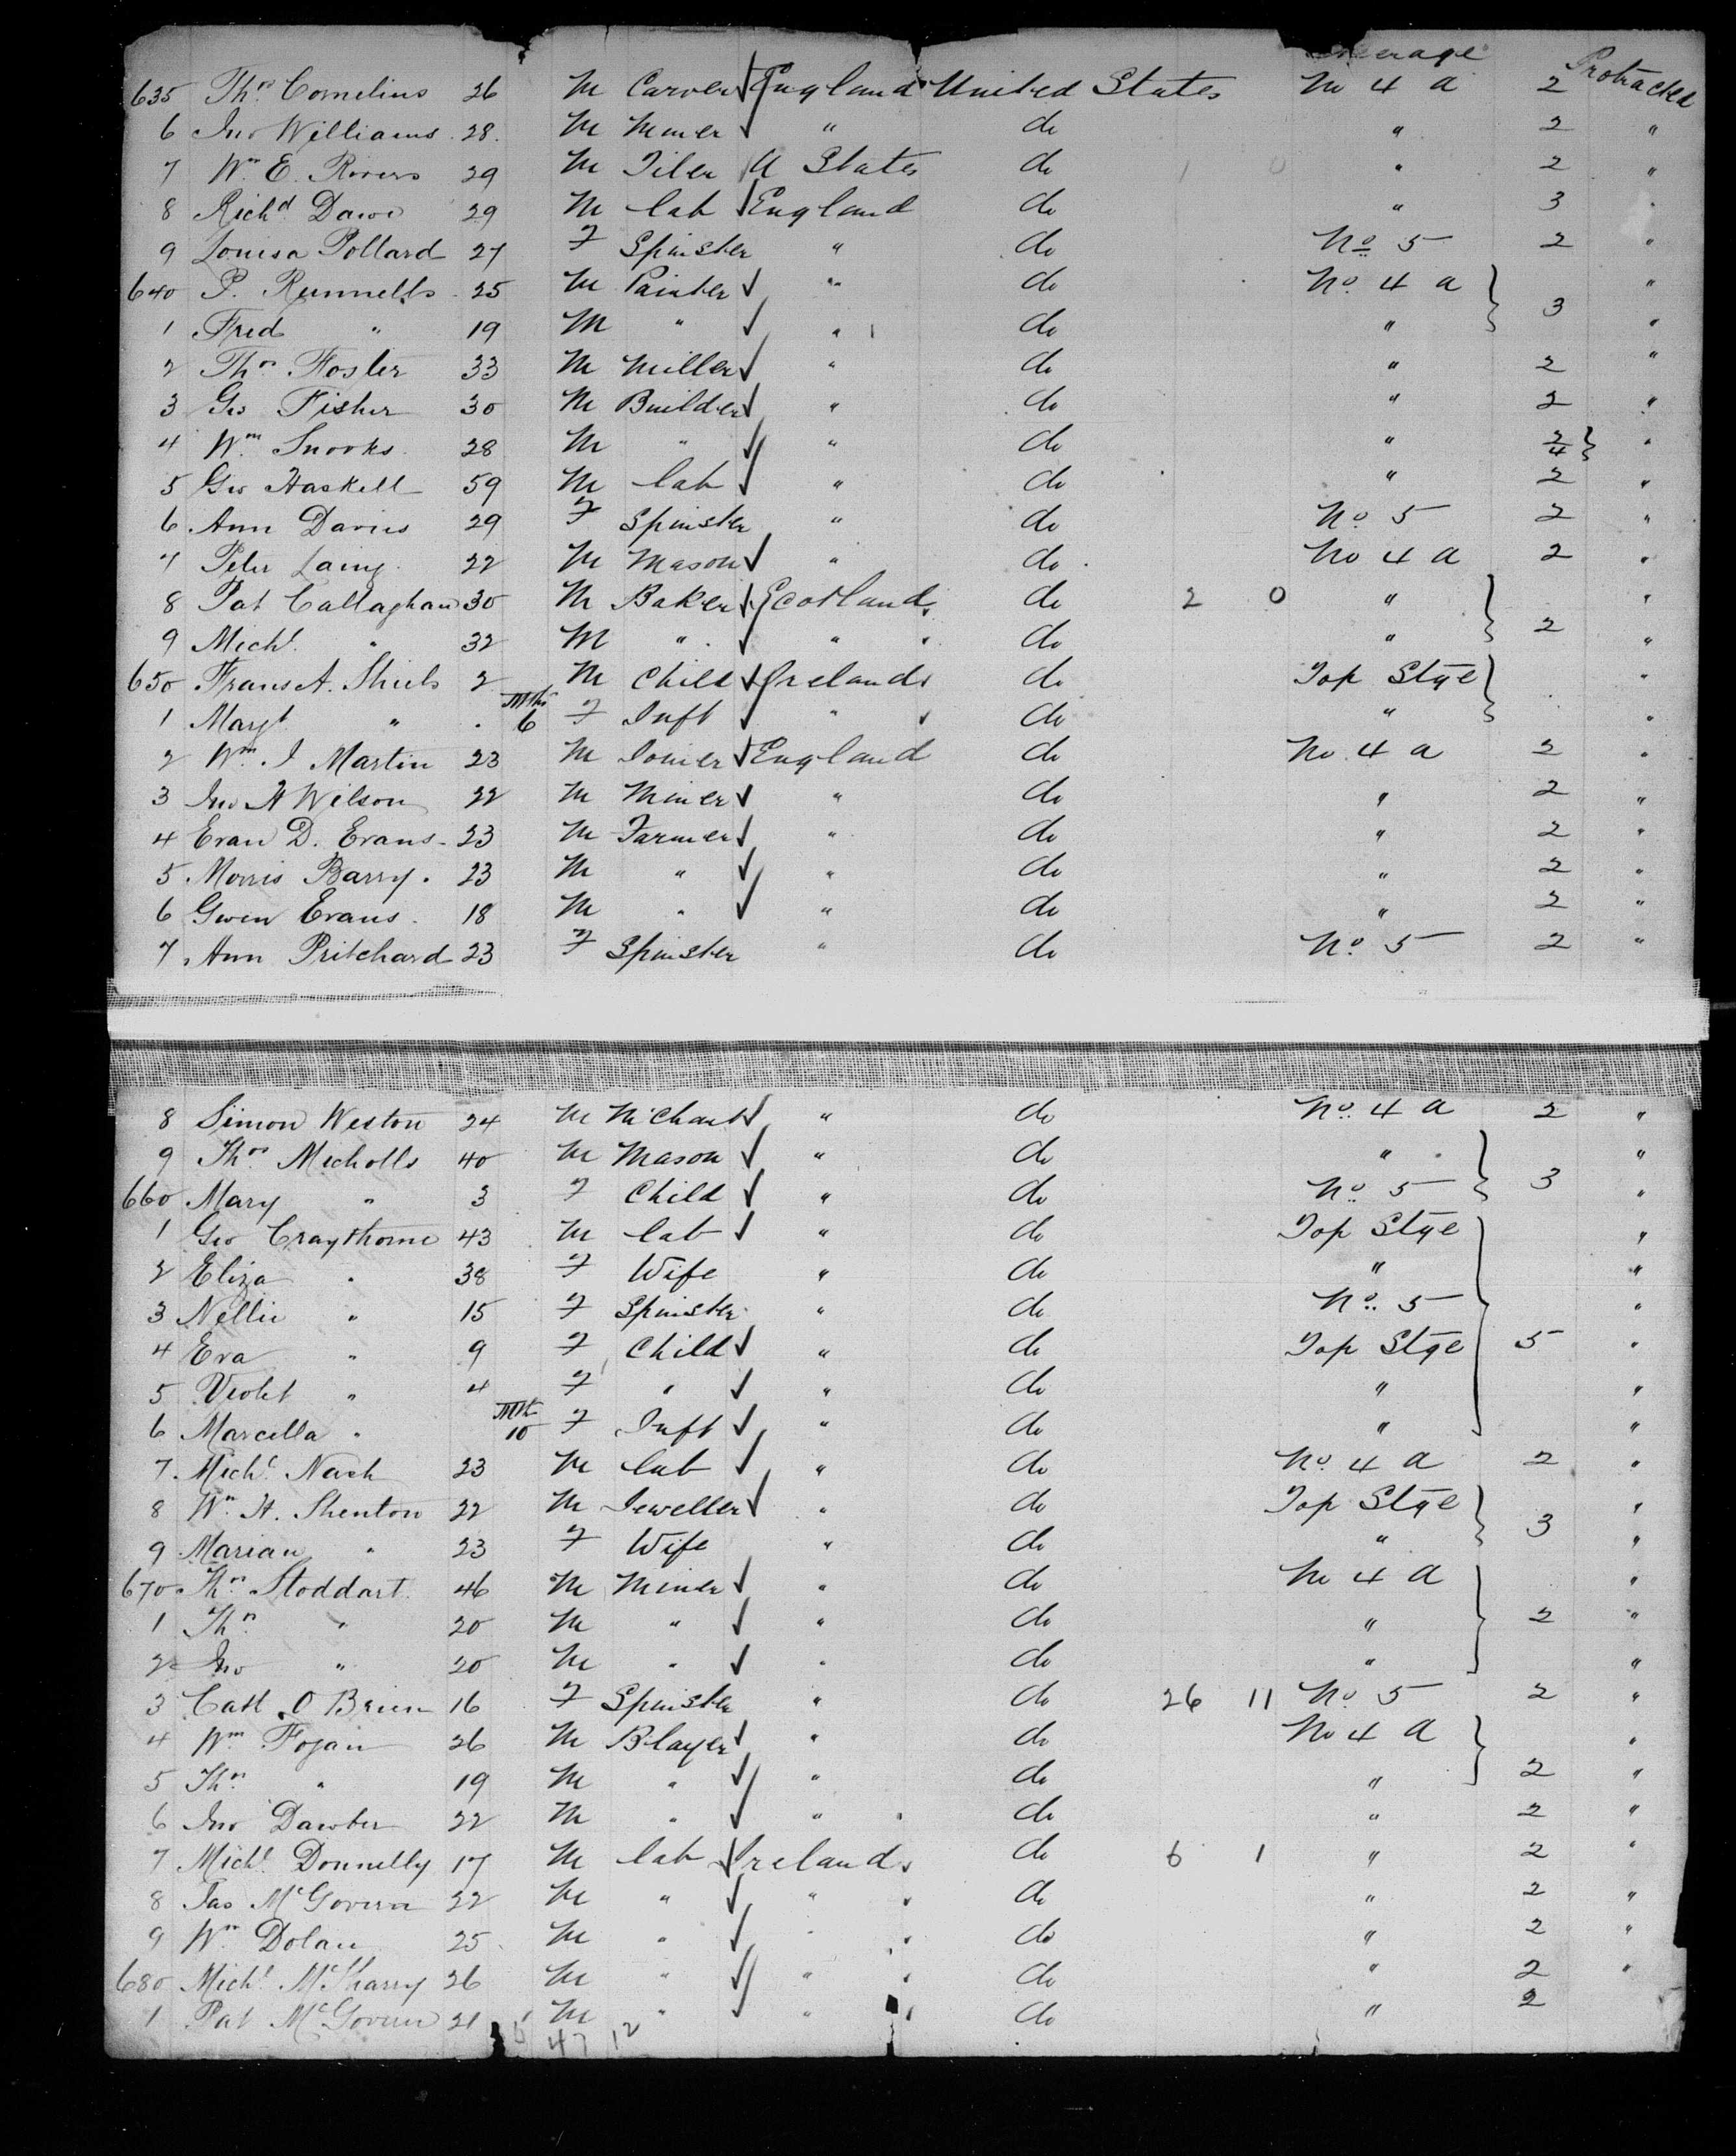 Steerage Protracted
635 Thos Cornelius 26 M Carver England United States No 4 a 2
6 Jno Williams 28 M Miner " do " 2 "
7 Wm E. Rivers 29 M Tiler U States do 1 0 " 2 "
8 Richd Dawe 29 M lab England do " 3 "
9 Louisa Pollard 27 F Spinster " do No 5 2 "
640 P. Runnells 25 M Painter " do No 4 a "
1 Fred " 19 M " " do " 3 "
2 Thos Foster 33 M Miller " do " 2 "
3 Geo Fisher 30 M Builder " do " 2 "
4 Wm Snooks 28 M " " do " 2/4 "
5 Geo Haskell 59 M lab " do " 2 "
6 Ann Davies 29 F Spinster " do No 5 2 "
7 Peter Laing 22 M Mason " do No 4 a 2 "
8 Pat Callaghan 30 M Baker Scotland do 2 0 " "
9 Michl " 32 M " " do " 2 "
650 Frans A. Shiels 2 M Child Ireland do Top Stge "
1 Margt " Mths 6 F Inft " do " "
2 Wm J Martin 23 M Joiner England do No. 4 a 2 "
3 Jno H Wilson 22 M Miner " do " 2 "
4 Evan D. Evans 23 M Farmer " do " 2 "
5 Morris Barry 23 M " " do " 2 "
6 Gwen Evans 18 M " " do " 2 "
7 Ann Pritchard 23 F Spinster " do No 5 2 "
8 Simon Weston 24 M Mchant " do No. 4 a 2 "
9 Thos Micholls 40 M Mason " do " "
660 Mary " 3 F Child " do No 5 3 "
1 Geo Craythorne 43 M lab " do Top Stge "
2 Eliza " 38 F Wife " do " "
3 Nellie " 15 F Spinster " do No. 5 "
4 Eva " 9 F Child " do Top Stge 5 "
5 Violet " 4 F " " do " "
6 Marcella " Mths 10 F Inft " do " "
7 Michl Nash 23 M lab " do No. 4 a 2 "
8 Wm H. Shenton 22 M Jeweller " do Top Stge "
9 Marian " 23 F Wife " do " 3 "
670 Thos Stoddart 46 M Miner " do No 4 a "
1 Thos " 20 M " " do " 2 "
2 Jno " 20 M " " do " "
3 Cath O Brien 16 F Spinster " do 26 11 No 5 2 "
4 Wm Fogan 26 M Blayer " do No 4 a "
5 Thos " 19 M " " do " 2 "
6 Jno Dawber 22 M " " do " 2 "
7 Michl Donnelly 17 M lab Ireland do 6 1 " 2 "
8 Jas McGovern 22 M " " do " 2 "
9 Wm Dolan 25 M " " do " 2 "
680 Michl McSharry 26 M " " do " 2 "
1 Pat McGovern 21 M " " do " 2
47 12